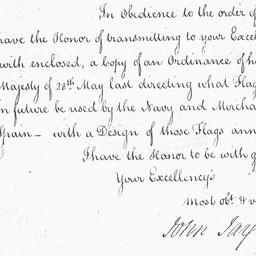 In Obedience to the order of
have the Honor of transmitting to your Excel
with enclosed, a copy of an Ordinance of h
Majesty of 28th May last directing what Flag
in future be used by the Navy and Mercha
Spain — with a Design of those Flags ann
I have the Honor to be with g
Your Excellency's
Most obt. & v
John Jay